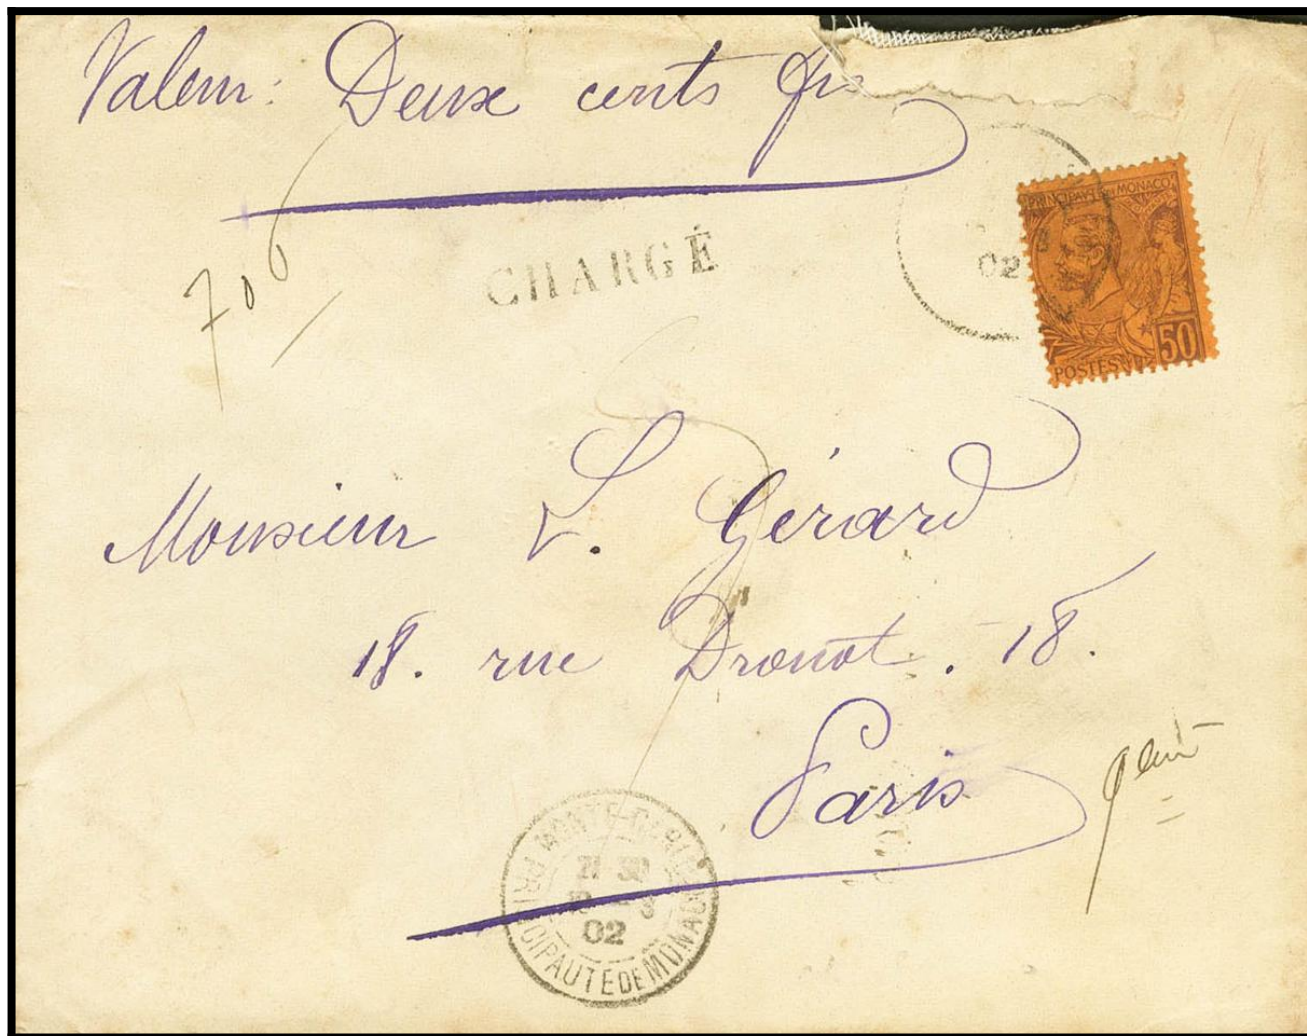 Valeur: Deux cents fr
700
CHARGÉ
02
PRINCIPAUTÉ DE MONACO
50
POSTES
Monsieur L. Gérard
18. rue Drouot. 18.
Paris
MONTE-CARLO
02
PRINCIPAUTÉ DE MONACO